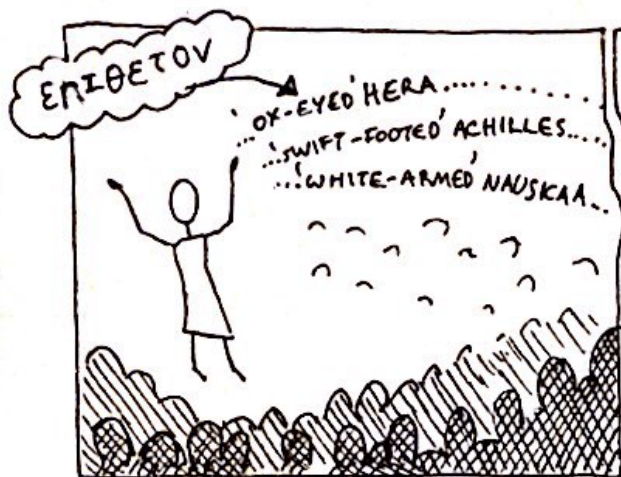 ΕΠΙΘΕΤΟΝ
....'OX-EYED' HERA..........
...'SWIFT-FOOTED' ACHILLES.....
...'WHITE-ARMED' NAUSICAA...